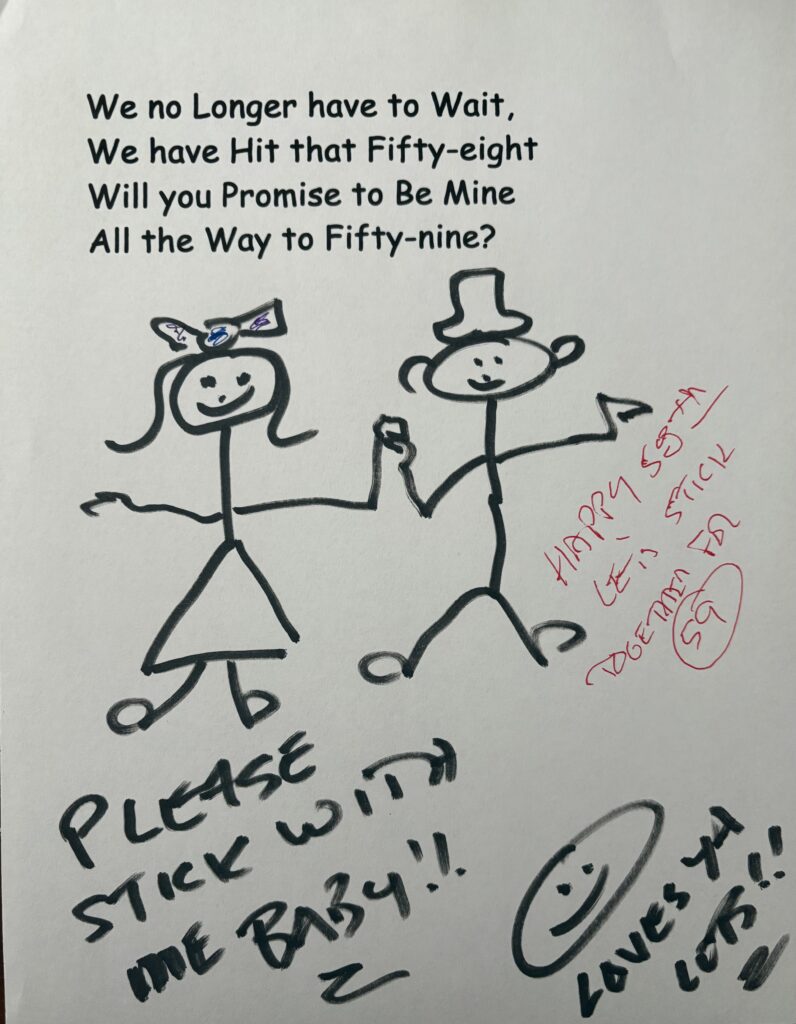 We no Longer have to Wait,
We have Hit that Fifty-eight
Will you Promise to Be Mine
All the Way to Fifty-nine?
HAPPY 58th
LET'S STICK
TOGETHER FOR
59
PLEASE
STICK WITH
ME BABY!!
LOVES YA
LOTS!!